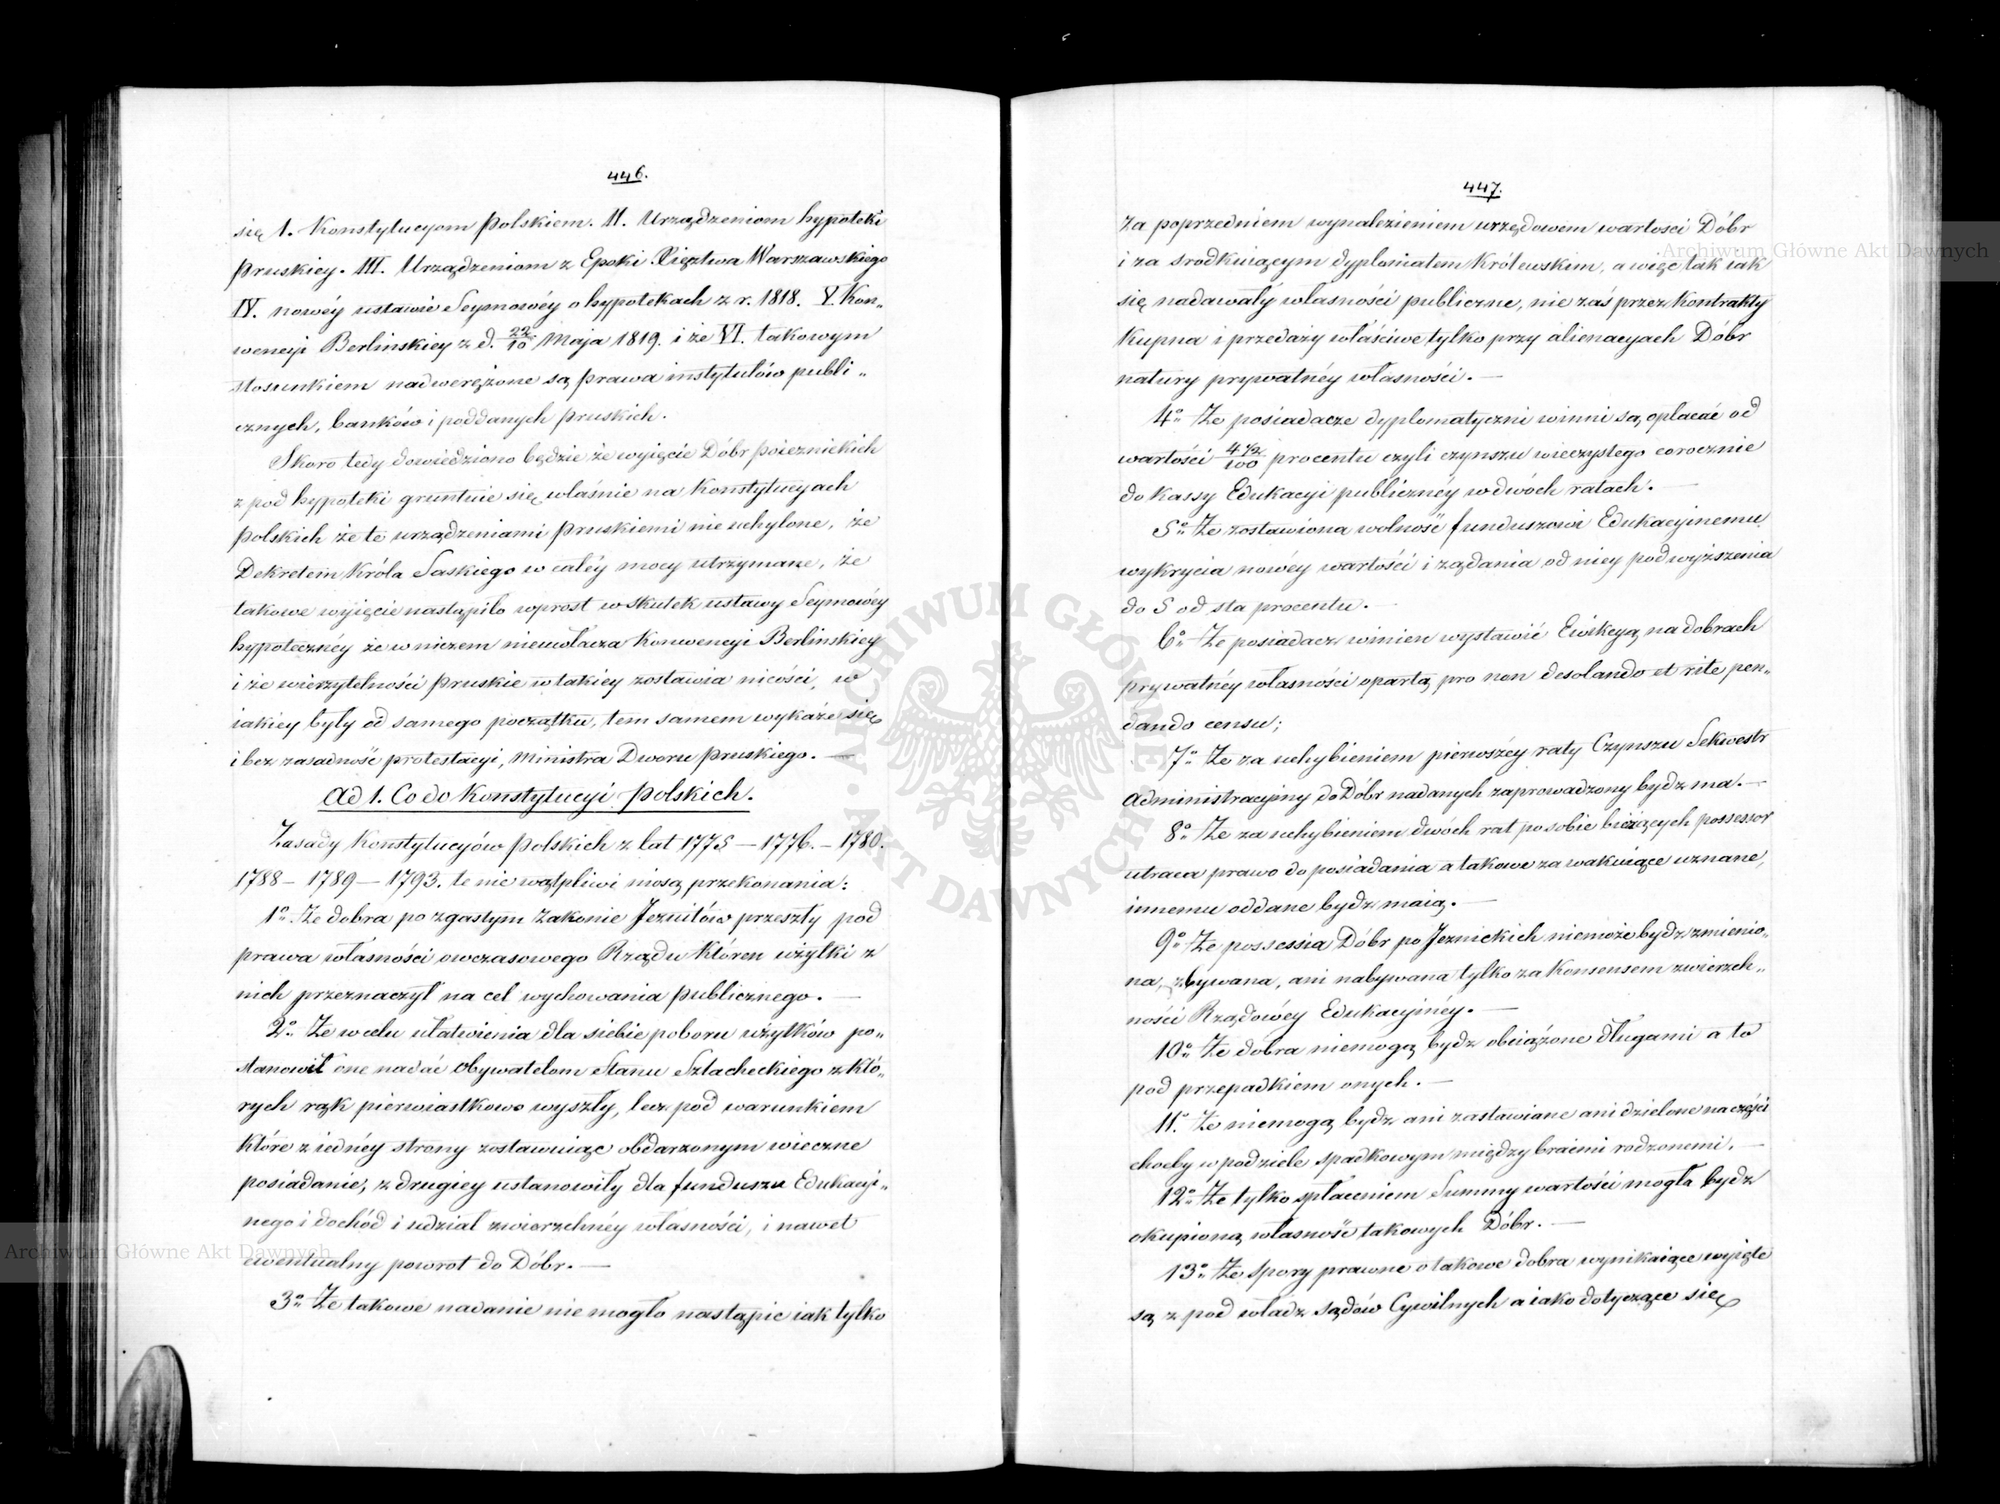 446.
się 1. Konstytucyom Polskiem. II. Urządzeniom hypoteki
Pruskiey. III. Urządzeniom z Epoki Xięztwa Warszawskiego
IV. nowéy ustawie Seymowéy o hypotekach z r. 1818. V. Kon„
wencyi Berlinskiey z d. 22/10 Maja 1819. i że VI. takowym
stosunkiem nadwerężone są prawa instytutów publi„
cznych, banków i poddanych Pruskich.
Skoro tedy dowiedziono będzie że wyięcie Dóbr poieznickich
z pod hypoteki gruntuie się właśnie na Konstytucyach
Polskich że te urządzeniami Pruskiemi nie uchylone, że
Dekretem Króla Saskiego w całéy mocy utrzymane, że
takowe wyięcie nastąpiło wprost w skutek ustawy Seymowéy
hypotecznéy że w niczem nieuwłacza Konwencyi Berlinskiey
i że wierzytelności Pruskie w takiey zostawia nicości, w
iakiey były od samego początku, tem samem wykaże się
i bez zasadność protestacyi, Ministra Dworu Pruskiego. —
Ad 1. Co do Konstytucyi Polskich.
Zasady Konstytucyów Polskich z lat 1775 — 1776. — 1780.
1788 — 1789 — 1793. te nie wątpliwi niosą przekonania:
1o. Że dobra po zgasłym Zakonie Jezuitów przeszły pod
prawa własności owczasowego Rządu Któren użytki z
nich przeznaczył na cel wychowania publicznego. —
2o. Że w celu ułatwienia dla siebie poboru użytków po„
stanowił one nadać Obywatelom Stanu Szlacheckiego z któ„
rych rąk pierwiastkowo wyszły, lecz pod warunkiem
które z iednéy strony zostawuiąc obdarzonym wieczne
posiadanie, z drugiey ustanowiły dla funduszu Edukacyi„
nego i dochód i udział zwierzchnéy własności, i nawet
ewentualny powrot do Dóbr. —
3o. Że takowe nadanie nie mogło nastąpic iak tylko
447.
Za poprzedniem wynalezieniem urzędowem wartosci Dóbr
i za srodkuiącym dyplomatem Królewskim, a więc tak iak
się nadawały własności publiczne, nie zaś przez Kontrakty
Kupna i przedaży właściwe tylko przy alienacyach Dóbr
natury prywatnéy własności. —
4o. Że posiadacze dyplomatyczni winni są opłacać od
wartości 4 1/2/100 procentu czyli czynszu wieczystego corocznie
do Kassy Edukacyi publicznéy w dwóch ratach. —
5o. Że zostawiona wolność funduszowi Edukacyinemu
wykrycia nowéy wartości i żądania od niey podwyższenia
do 5 od sta procentu. —
6o. Że posiadacz winien wystawić Ewikcyą na dobrach
prywatnéy własności opartą pro non desolando et rite pen„
dando censu;
7o. Że za uchybieniem pierwszéy raty Czynszu Sekwestr
Administracyiny do Dóbr nadanych zaprowadzony bydz ma. —
8o. Że za uchybieniem dwóch rat po sobie bieżących possessor
utraca prawo do posiadania a takowe za wakuiące uznane,
innemu oddane bydz maią. —
9o. Że possessia Dóbr po Jeznickich niemoże bydz zmienio„
na, zbywana, ani nabywana tylko za Konsensem zwierzch„
ności Rządowéy Edukacyinéy. —
10o. Że dobra niemogą bydz obciążone długami a to
pod przepadkiem onych. —
11o. Że niemogą bydz ani zastawiane ani dzielone na części
choćby w podziele spadkowym między braćmi rodzonemi. —
12o. Że tylko spłaceniem Summy wartości mogła bydz
okupioną własność takowych Dóbr. —
13o. Że spory prawne o takowe dobra wynikaiące wyięte
są z pod władz sądów Cywilnych a iako dotyczące się
Archiwum Główne Akt Dawnych
Archiwum Główne Akt Dawnych
ARCHIWUM GŁÓWNE AKT DAWNYCH